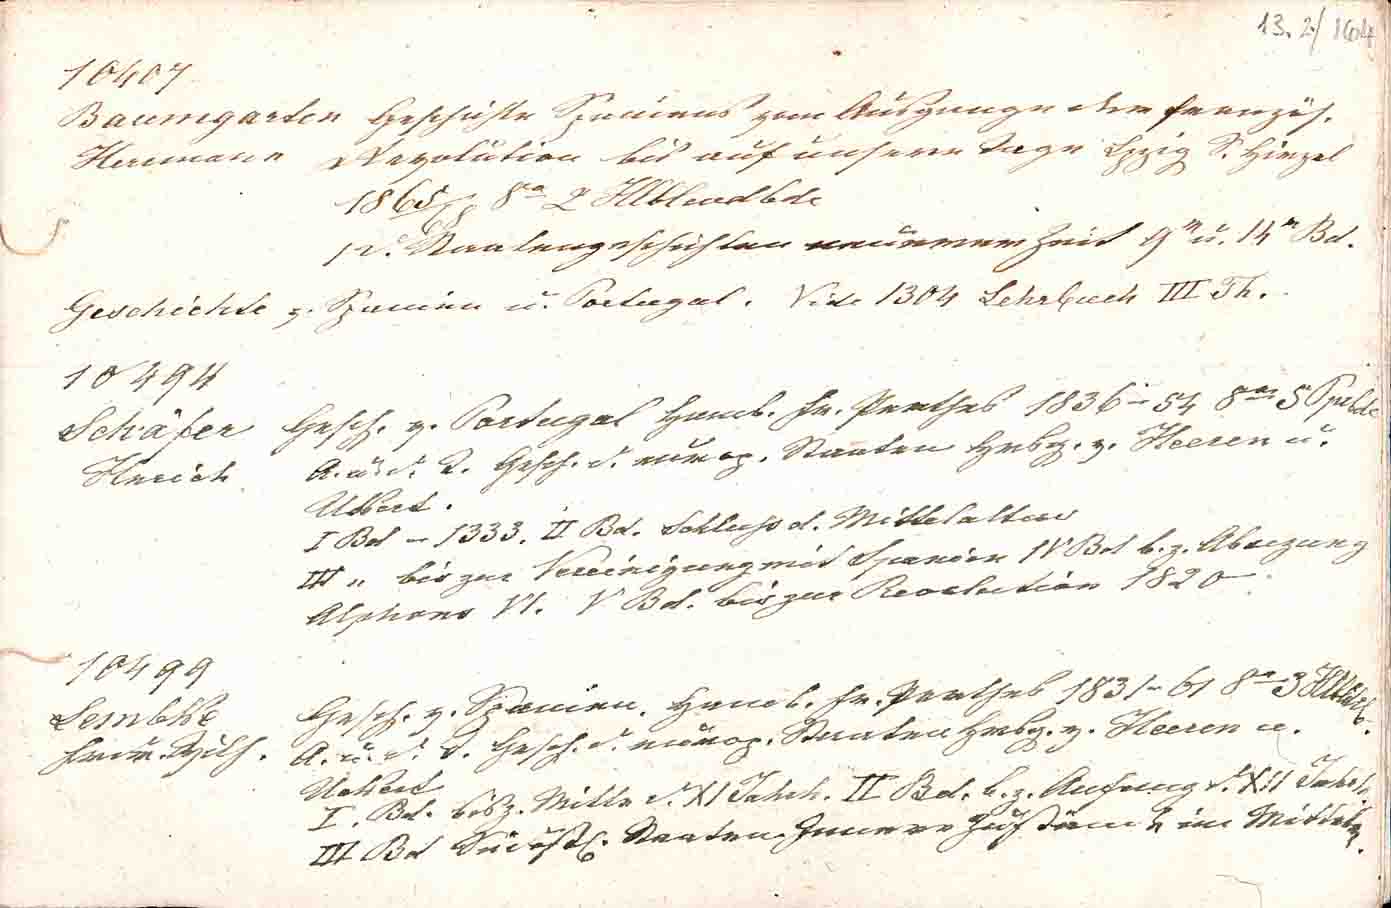 13. 2/164
10407
Baumgarten Geschichte Spaniens vom Ausgange der französ.
Hermann Revolution bis auf unsere Tage Lpzig S. Hirzel
1865/68 8° 2 Hlblwdbde
Staatengeschichten neuerer Zeit 9r u. 14r Bd.
Geschichte v. Spanien u. Portugal. Vide 1304 Lehrbuch III Th.
10494
Schäfer Gesch. v. Portugal Hamb. Fr. Perthes 1836–54 8° 5 Ppbde
Hnrich A. u. d. T. Gesch. d. europ. Staaten Hrbg. v. Heeren u.
Ukert.
I Bd – 1333. II Bd. Schluss d. Mittelalters
III " bis zur Vereinigung mit Spanien IV Bd b. z. Absezung
Alphons VI. V Bd. bis zur Revolution 1820
10499
Lembke Gesch. v. Spanien. Hamb. Fr. Perthes 1831–61 8° 3 Hlblwdb.
Fried. Wilh. A. u. d. T. Gesch. d. europ. Staaten Hrbg. v. Heeren u.
Ukert
I. Bd. bis z. Mitte d. XI Jahrh. II Bd. b. z. Anfang d. XII Jahrh.
III Bd Südöstl. Staaten. Innere Zustände im Mittela.